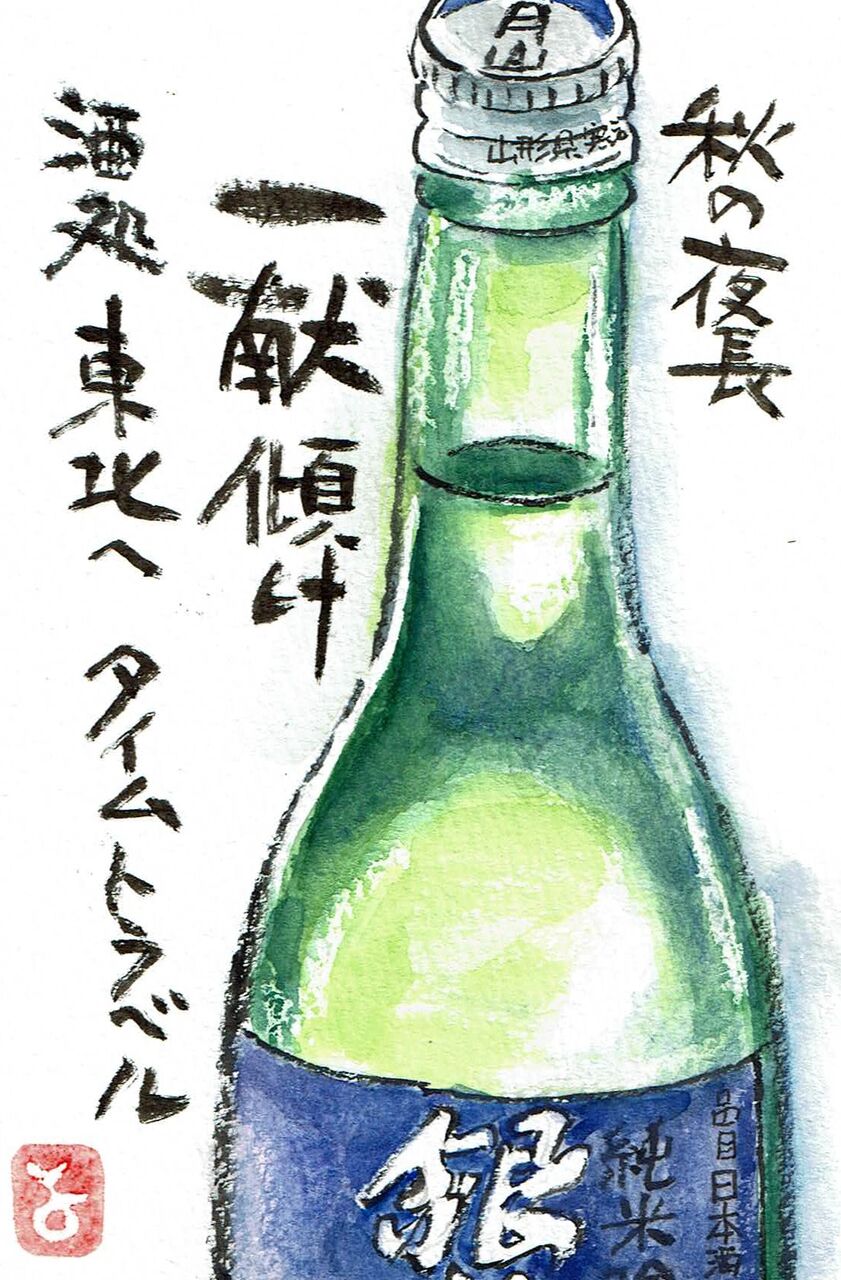 秋の夜長
一献傾け
酒処 東北へ タイムトラベル
月山
山形県寒
品目 日本酒
純米吟
銀